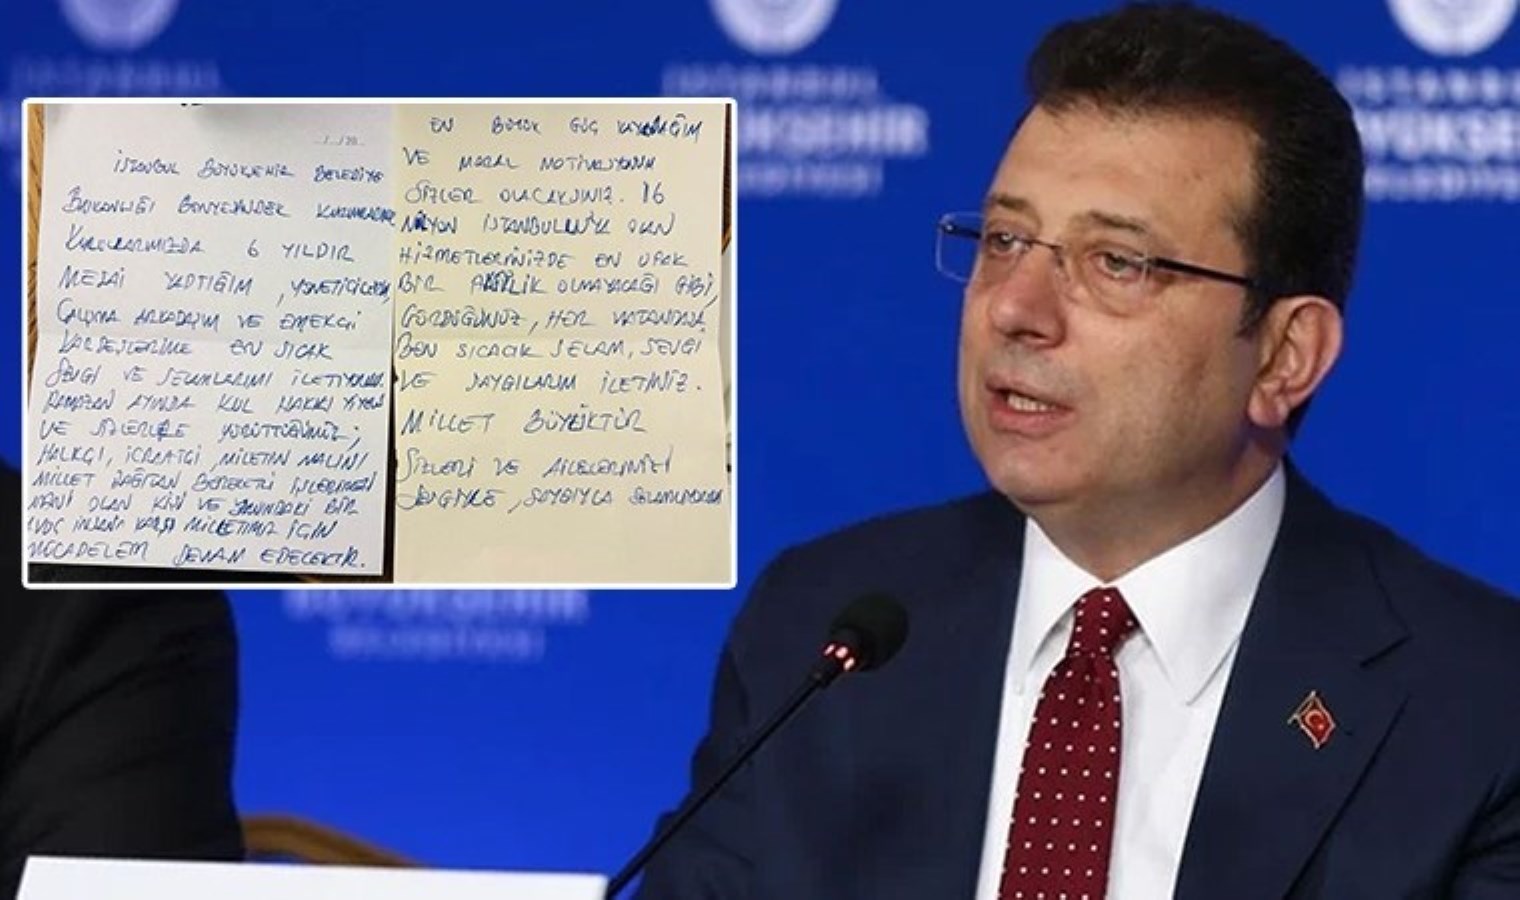 İSTANBUL
BÜYÜKŞEHİR
BELEDİYESİ
../.../20..
İSTANBUL BÜYÜKŞEHİR BELEDİYE
BAŞKANLIĞI BÜNYESİNDEKİ
6 YILDIR
MESAİ YAPTIĞIM , YÖNETİCİLERİM,
ÇALIŞMA ARKADAŞIM VE EMEKÇİ
KARDEŞLERİME EN SICAK
SEVGİ VE SELAMLARIMI İLETİYORUM.
RAMAZAN AYINDA KUL HAKKI YİYEN
VE SİZLERLE YÜRÜTTÜĞÜMÜZ;
HALKÇI, İCRAATÇI , MİLLETİN MALINI
MİLLETE DAĞITAN BEREKETLİ İŞLERİMİZİ
MANİ OLAN KİŞİ VE YANINDAKİ BİR
AVUÇ İNSANA KARŞI MİLLETİMİZ İÇİN
MÜCADELEM DEVAM EDECEKTİR.
EN BÜYÜK GÜÇ KAYNAĞIM
VE MORAL MOTİVASYONUM
SİZLER OLACAKSINIZ. 16
MİLYON İSTANBULLUYA OLAN
HİZMETLERİNİZDE EN UFAK
BİR OLMAYACAĞI GİBİ,
GÖRDÜĞÜNÜZ, HER VATANDAŞA
BEN SICACIK SELAM, SEVGİ
VE SAYGILARIM İLETİNİZ.
MİLLET BÜYÜKTÜR
SİZLERİ VE AİLELERİNİZİ
SEVGİYLE , SAYGIYLA SELAMLIYORUM